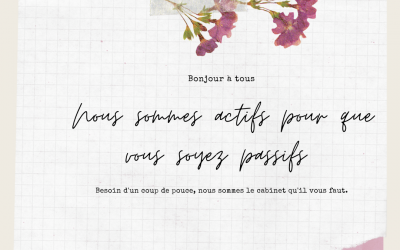 Bonjour à tous
Nous sommes actifs pour que
vous soyez passifs
Besoin d'un coup de pouce, nous sommes le cabinet qu'il vous faut.